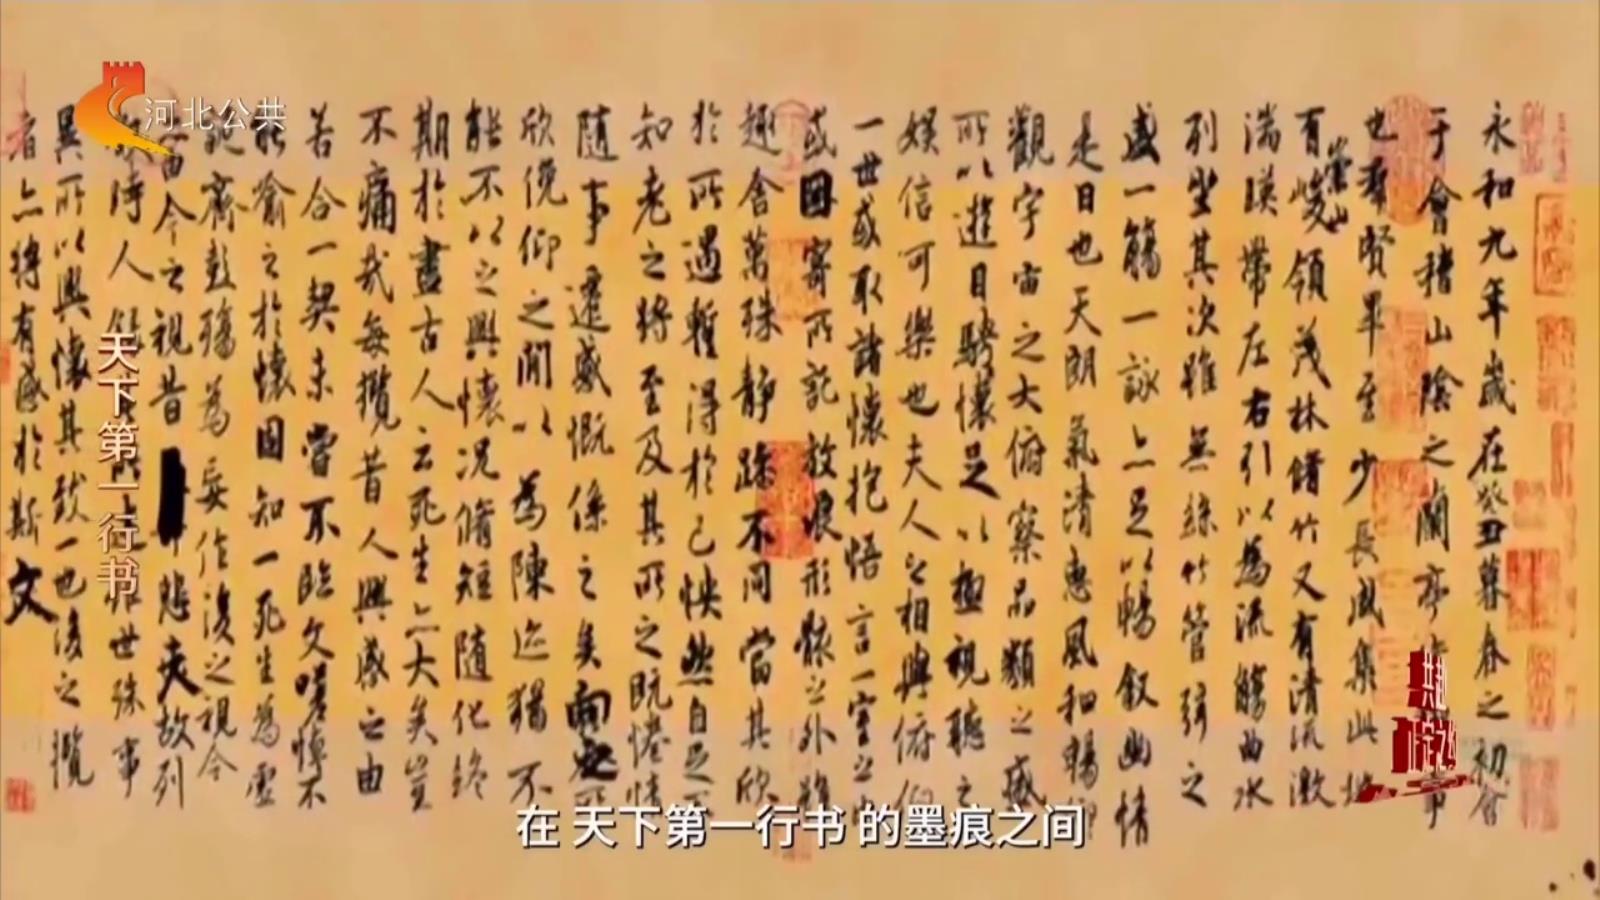 河北公共
永和九年歲在癸丑暮春之初會
于會稽山陰之蘭亭事
也羣賢畢至少長咸集此地
有崇山峻領茂林脩竹又有清流激
湍暎帶左右引以為流觴曲水
列坐其次雖無絲竹管弦之
盛一觴一詠亦足以暢敘幽情
是日也天朗氣清惠風和暢仰
觀宇宙之大俯察品類之盛
所以遊目騁懷足以極視聽之
娛信可樂也夫人之相與俯仰
一世或取諸懷抱悟言一室之內
或因寄所託放浪形骸之外雖
趣舍萬殊靜躁不同當其欣
於所遇暫得於己怏然自足不
知老之將至及其所之既惓情
隨事遷感慨係之矣向之所
欣俛仰之閒以為陳迹猶不
能不以之興懷況脩短隨化終
期於盡古人云死生亦大矣豈
不痛哉每攬昔人興感之由
若合一契未嘗不臨文嗟悼不
能喻之於懷固知一死生為虛
誕齊彭殤為妄作後之視今
由今之視昔悲夫故列
時人世殊事
異所以興懷其致一也後之攬
者亦將有感於斯文
天下第一行书
在 天下第一行书 的墨痕之间